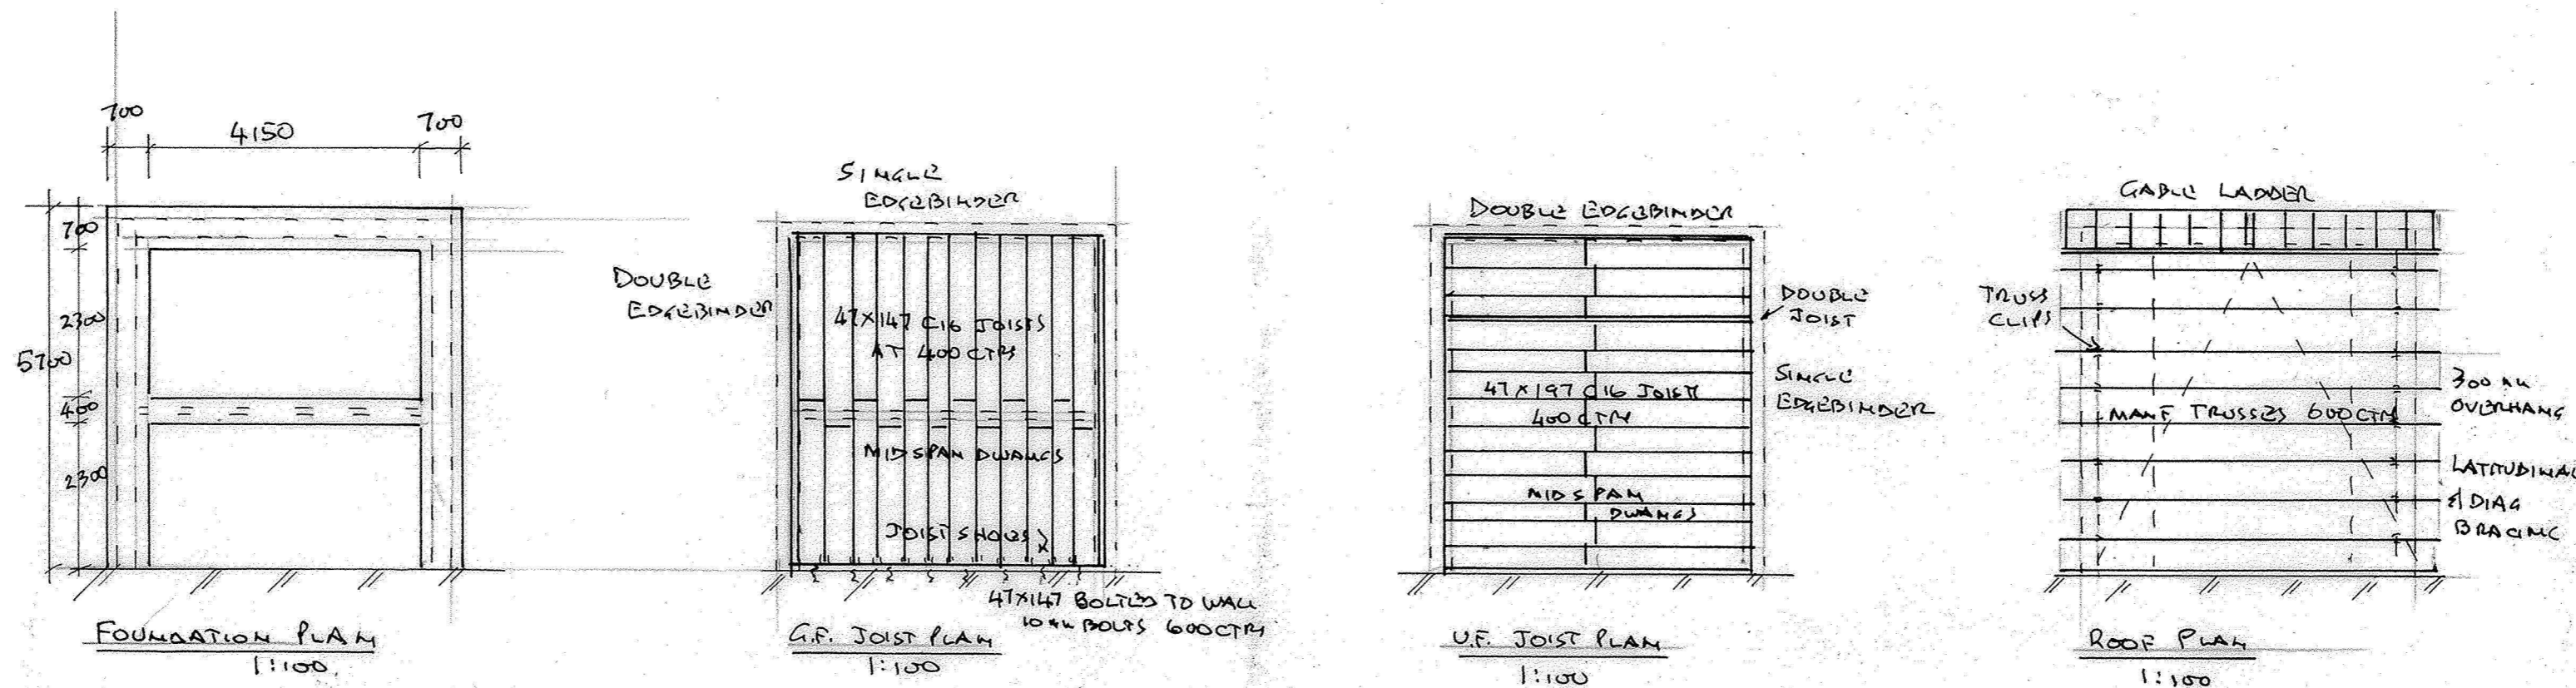 700
4150
700
700
2300
5700
400
2300
FOUNDATION PLAN
1:100
SINGLE
EDGEBINDER
DOUBLE
EDGEBINDER
47×147 C16 JOISTS
AT 400 CTRS
MIDSPAN DWANGS
JOIST SHOES
47×147 BOLTED TO WALL
10MM BOLTS 600 CTRS
G.F. JOIST PLAN
1:100
DOUBLE EDGEBINDER
DOUBLE
JOIST
47×197 C16 JOIST
400 CTRS
SINGLE
EDGEBINDER
MIDSPAN
DWANGS
U.F. JOIST PLAN
1:100
GABLE LADDER
TRUSS
CLIPS
300 MM
OVERHANG
MANF TRUSSES 600 CTRS
LATITUDINAL
& DIAG
BRACING
ROOF PLAN
1:100